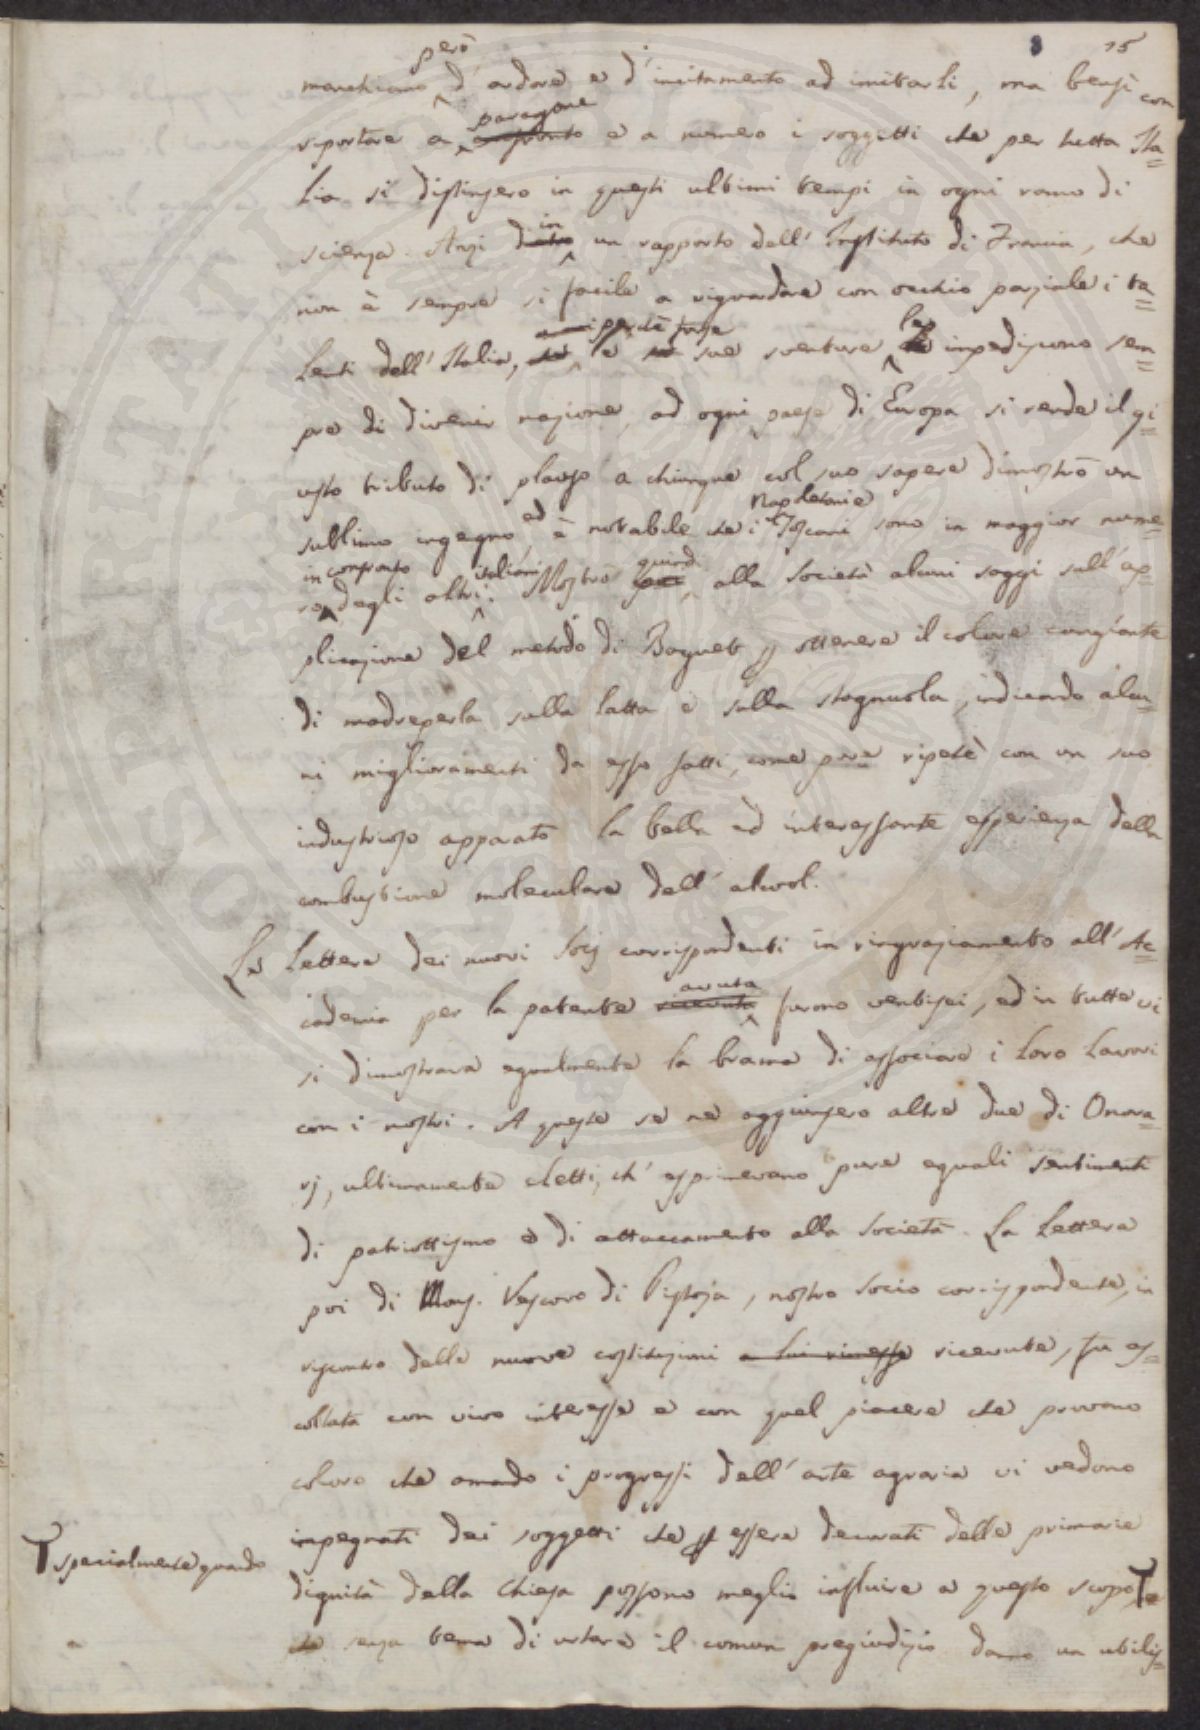 15
però
marchiamo d'ardore e d'incitamento ad imitarli, ma bensì con
paragone
riportare a confronto e a numero i soggetti che per tutta Ita=
lia si distinsero in questi ultimi tempi in ogni ramo di
in
scienza. Anzi dietro un rapporto dell'Instituto di Francia, che
non è sempre sì facile a riguardare con occhio parziale i ta=
perchè forse le
lenti dell'Italia, e sue sventure impediscono sem=
pre di divenir nazione, ad ogni paese di Europa si rende il gi=
usto tributo di plauso a chiunque col suo sapere dimostrò un
ed Napoletani e
sublime ingegno è notabile che i Toscani sono in maggior nume=
in confronto italiani quindi
ro degli altri. Mostrò poi, alla Società alcuni saggi sull'ap=
plicazione del metodo di Baguet p ottenere il colore cangiante
di madreperla sulla latta e sulla stagnuola, indicando alcu=
ni miglioramenti da esso fatti, come pure ripetè con un suo
industrioso apparato la bella ed interessante esperienza della
combustione moleculare dell'alcool.
Le Lettere dei nuovi Socj corrispondenti in ringraziamento all'Ac=
avuta
cademia per la patente ricevuta furono ventisei, ed in tutte vi
si dimostrava egualmente la brama di associare i loro lavori
con i nostri. A queste se ne aggiunsero altre due di Onora=
rj, ultimamente eletti, ch'esprimevano pure eguali sentimenti
di patriottismo e di attaccamento alla Società. La Lettera
poi di Mons. Vescovo di Pistoja, nostro Socio corrispondente, in
riscontro delle nuove costituzioni a lui rimesse ricevute, fu as=
coltata con vivo interesse e con quel piacere che provano
coloro che amando i progressi dell'arte agraria vi vedono
impegnati dei soggetti che p essere decorati delle primarie
specialmente quando
dignità della Chiesa possono meglio influire a questo scopo e
che senza tema di urtare il comun pregiudizio danno un utilis=